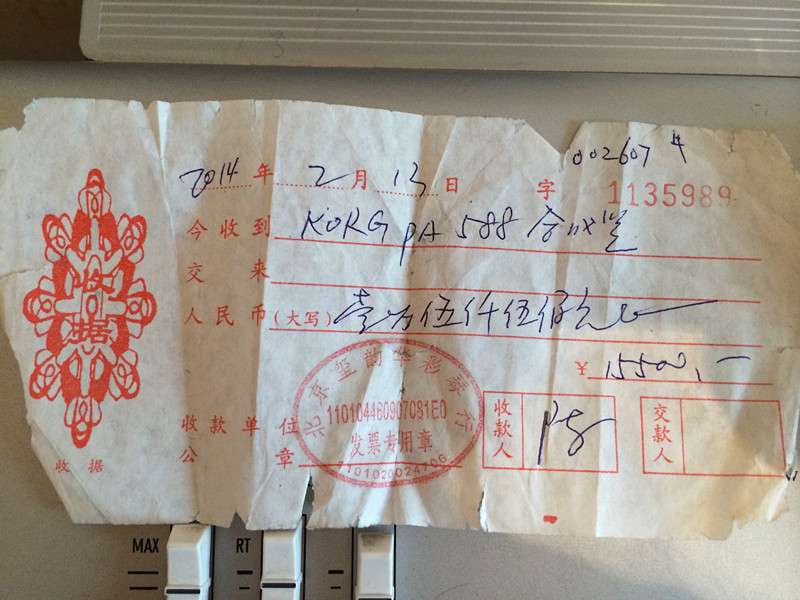 002607
2014年2月13日 字 1135989
今收到 KORG PA 588 合成器
交来
人民币(大写) 壹万伍仟伍佰元
¥ 15500.-
收款单位
公章
北京玺韵华彩琴行
110104460907081E0
发票专用章
收款人
交款人
收据
收据
MAX RT